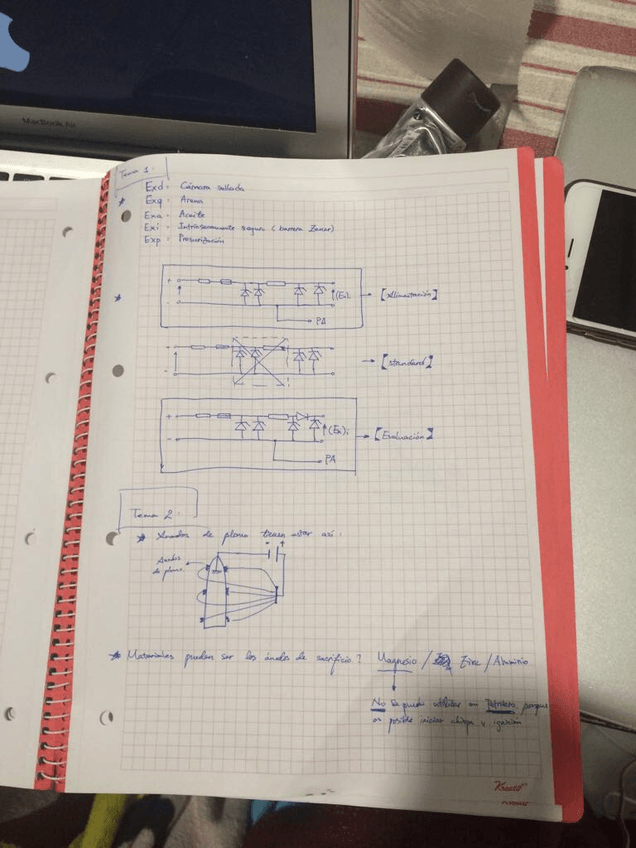 MacBook Air
Tema 1.
Exd. Cámara sellada
* Exq. Arena
Exa. Aceite
Exi. Intrínsecamente seguro (barrera Zener)
Exp. Presurización
+
-
(Ex)i
PA
* [Alimentación]
+
-
[Standard]
+
-
(Ex)i
PA
[Evaluación]
Tema 2.
* Ánodos de plomo tienen estar así:
- +
Ánodos
de plomo
* Materiales pueden ser los ánodos de sacrificio? Magnesio / Zinc / Aluminio
No se puede utilizar en Petrolero porque
es posible iniciar chispa y ignición
Kraato